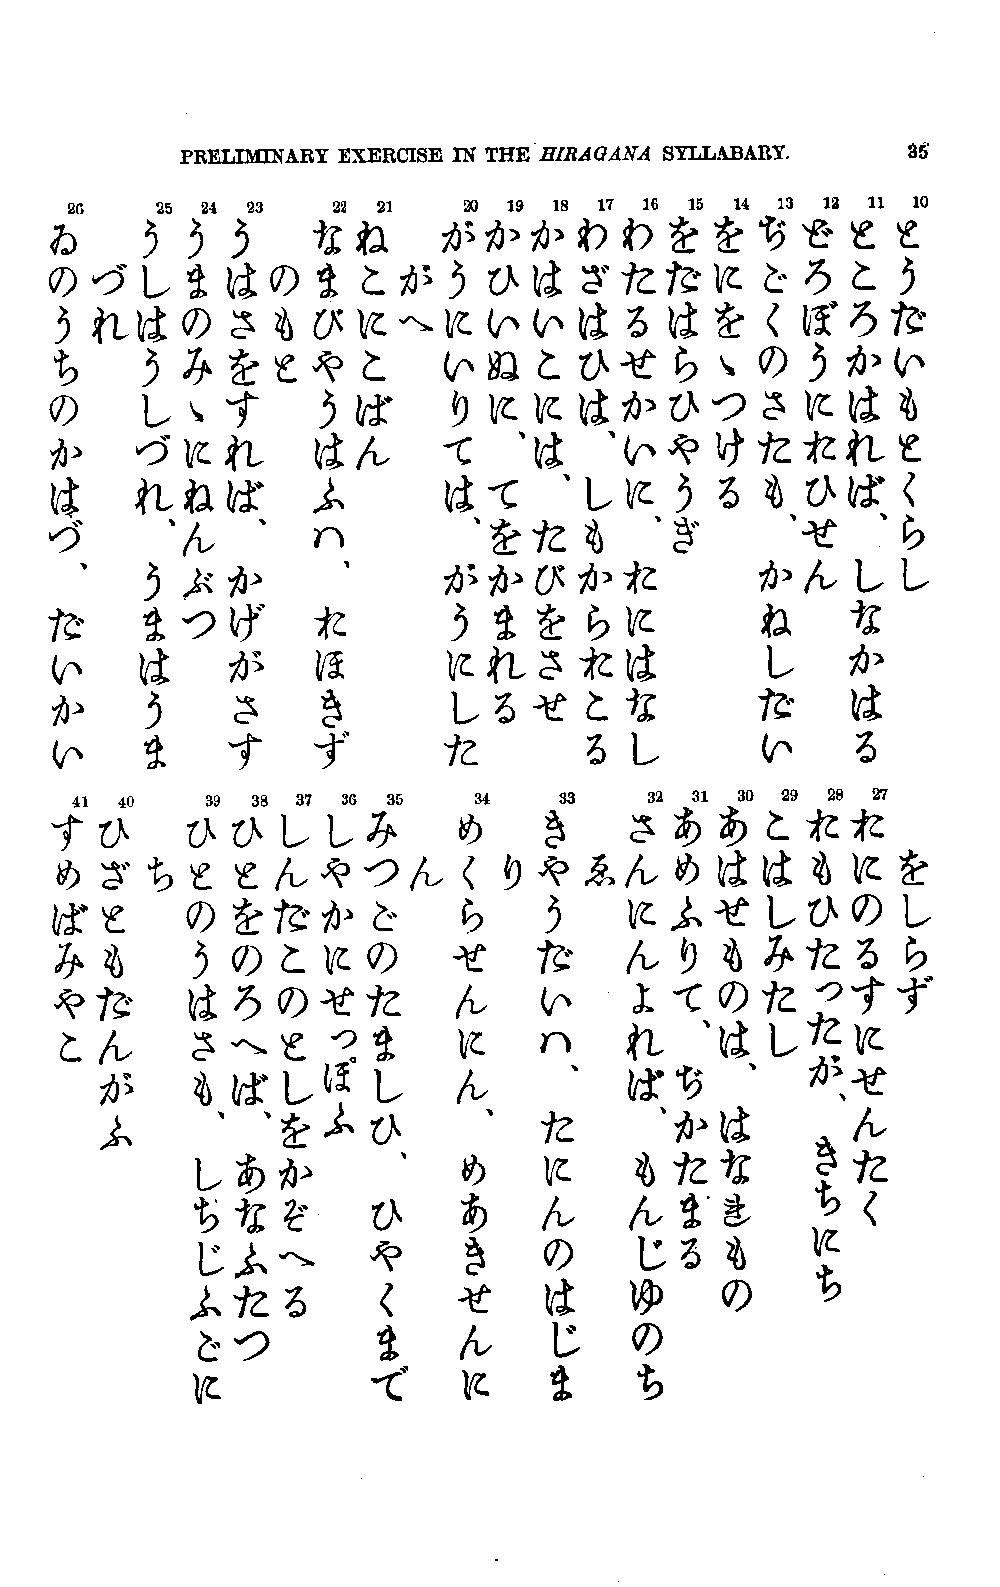 PRELIMINARY EXERCISE IN THE HIRAGANA SYLLABARY. 35
10 とうだいもとくらし
11 ところかはれば、しなかはる
12 どろぼうにおひせん
13 ぢごくのさたも、かねしだい
14 をにをゝつける
15 をだはらひやうぎ
16 わたるせかいに、おにはなし
17 わざはひは、しもからおこる
18 かはいこには、たびをさせ
19 かひいぬに、てをかまれる
20 がうにいりては、がうにした
がへ
21 ねこにこばん
22 なまびやうはふハ、おほきず
のもと
23 うはさをすれば、かげがさす
24 うまのみゝにねんぶつ
25 うしはうしづれ、うまはうま
づれ
26 ゐのうちのかはづ、だいかい
をしらず
27 おにのるすにせんたく
28 おもひたつたが、きちにち
29 こはしみたし
30 あはせものは、はなれもの
31 あめふりて、ぢかたまる
32 さんにんよれば、もんじゆのち
ゑ
33 きやうだいハ、たにんのはじま
り
34 めくらせんにん、めあきせんに
ん
35 みつごのたましひ、ひやくまで
36 しやかにせつぽふ
37 しんだこのとしをかぞへる
38 ひとをのろへば、あなふたつ
39 ひとのうはさも、しちじふごに
ち
40 ひざともだんがふ
41 すめばみやこ